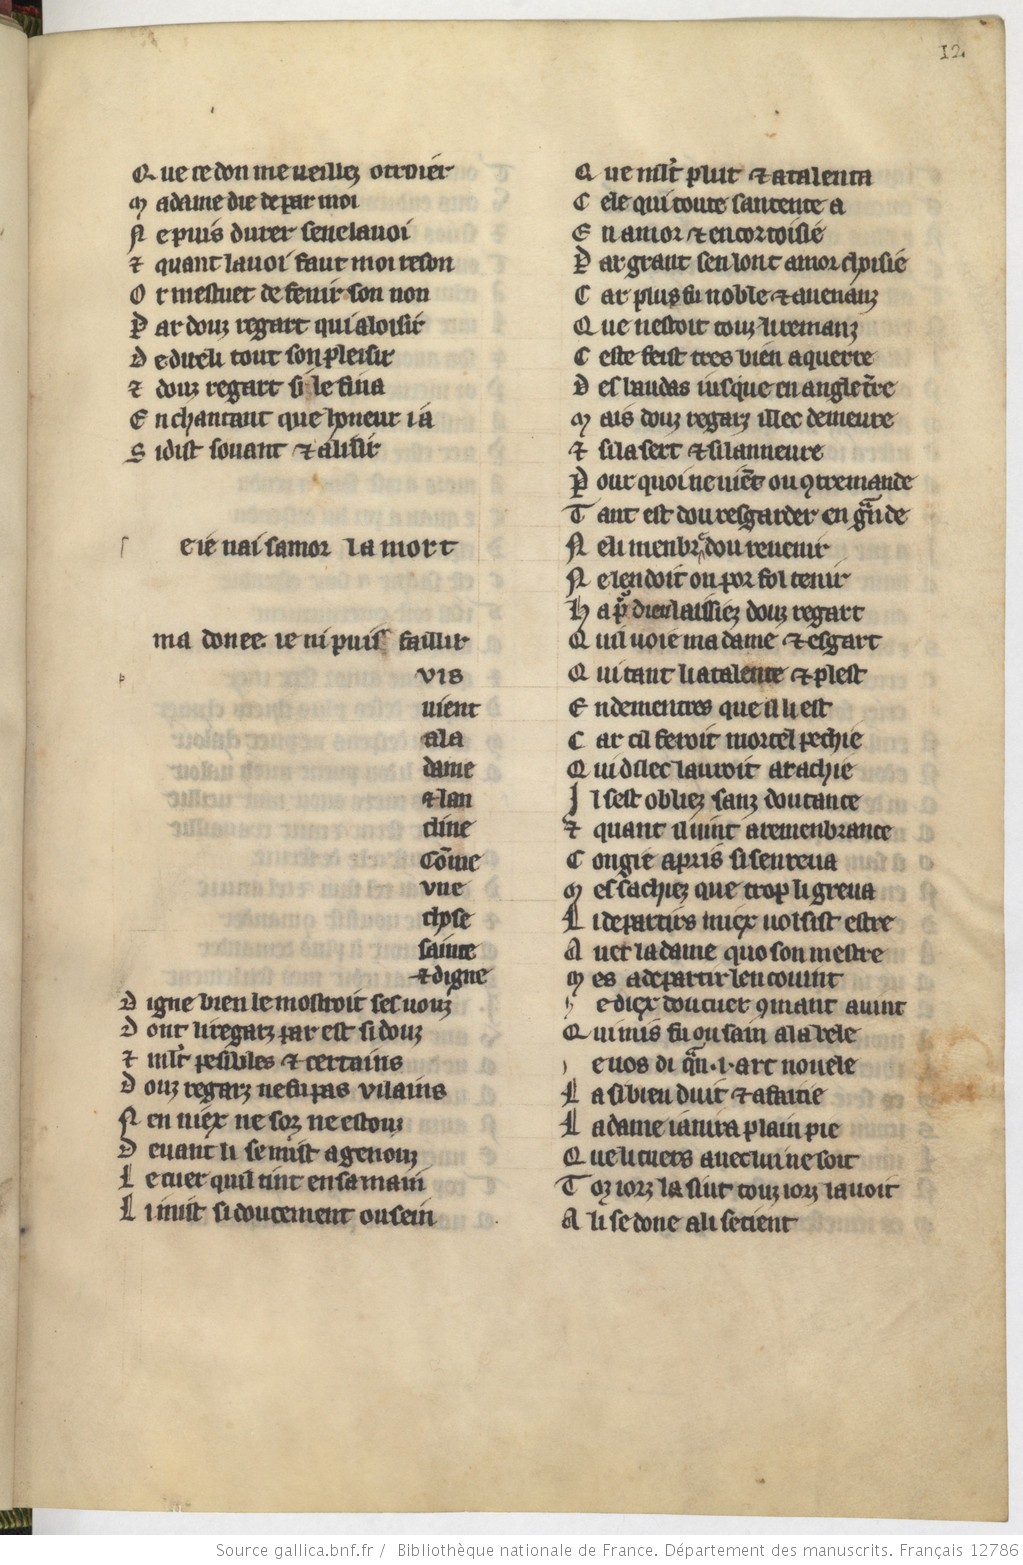 12
Que ce don me veilliez otroier
Madame die de par moi
Ne puis durer se ne la voi
⁊ quant la voi faut moi reson
Or mestuet de fenir son non
Par douz regart qui a loisir
De dueil tout son pleisir
⁊ douz regart si le fina
En chantant que honeur i a
Si dist souant ⁊ a lisir
e ie nai samor la mort
ma donee. ie ni puis faillir
vis
vient
a la
dame
⁊ lan
cline
Cōme
vne
chose
sainte
⁊ digne
Digne bien le mostroit ses vouz
Dont li regarz par est si douz
⁊ mlt̄ pesibles ⁊ certains
Douz regarz ne fu pas vilains
Nen niex ne sorz ne estouz
Deuant li se mist a genouz
Le cuer quil tint en sa main
Li mist si doucement ou sein
Que mlt̄ plut ⁊ atalenta
Cele qui toute santente a
En amor ⁊ en cortoisie
Par grant sen lont amor choisie
Car plus fu noble ⁊ auenanz
Que nestoit touz li remanz
Ceste feist tres bien a querre
Des laudas iusque en anglet̄re
Mais douz regarz illec demeure
⁊ si la sert ⁊ si lanneure
Pour quoi ne viēt ou ꝯtremande
Tant est dou resgarder en gñde
Ne li menbra dou reuenir
Ne len doit on por fol tenir
Ha p̄ dieu laissiez douz regart
Quil voie ma dame ⁊ esgart
Qui tant li atalente ⁊ plest
Endementres que il li est
Car cil feroit mortel pechie
Qui dilec lauroit arachie
Il sest obliez sanz doutance
⁊ quant il vint a remenbrance
Congie a pris si sen reua
Mes sachiez que trop li greua
Li departirs miex volsist estre
Auec la dame quo son mestre
Mes a departir len couint
e diex dou cuer ꝯmant auint
Qui mis fu ou sain a la bele
e vos di q̄n .i. art nouele
La si bien duit ⁊ afaitie
La dame ia nira plain pie
Que li cuers auec lui ne soit
Toz iorz la siut touz iorz la voit
A li se done a li se tient
Source gallica.bnf.fr / Bibliothèque nationale de France. Département des manuscrits. Français 12786